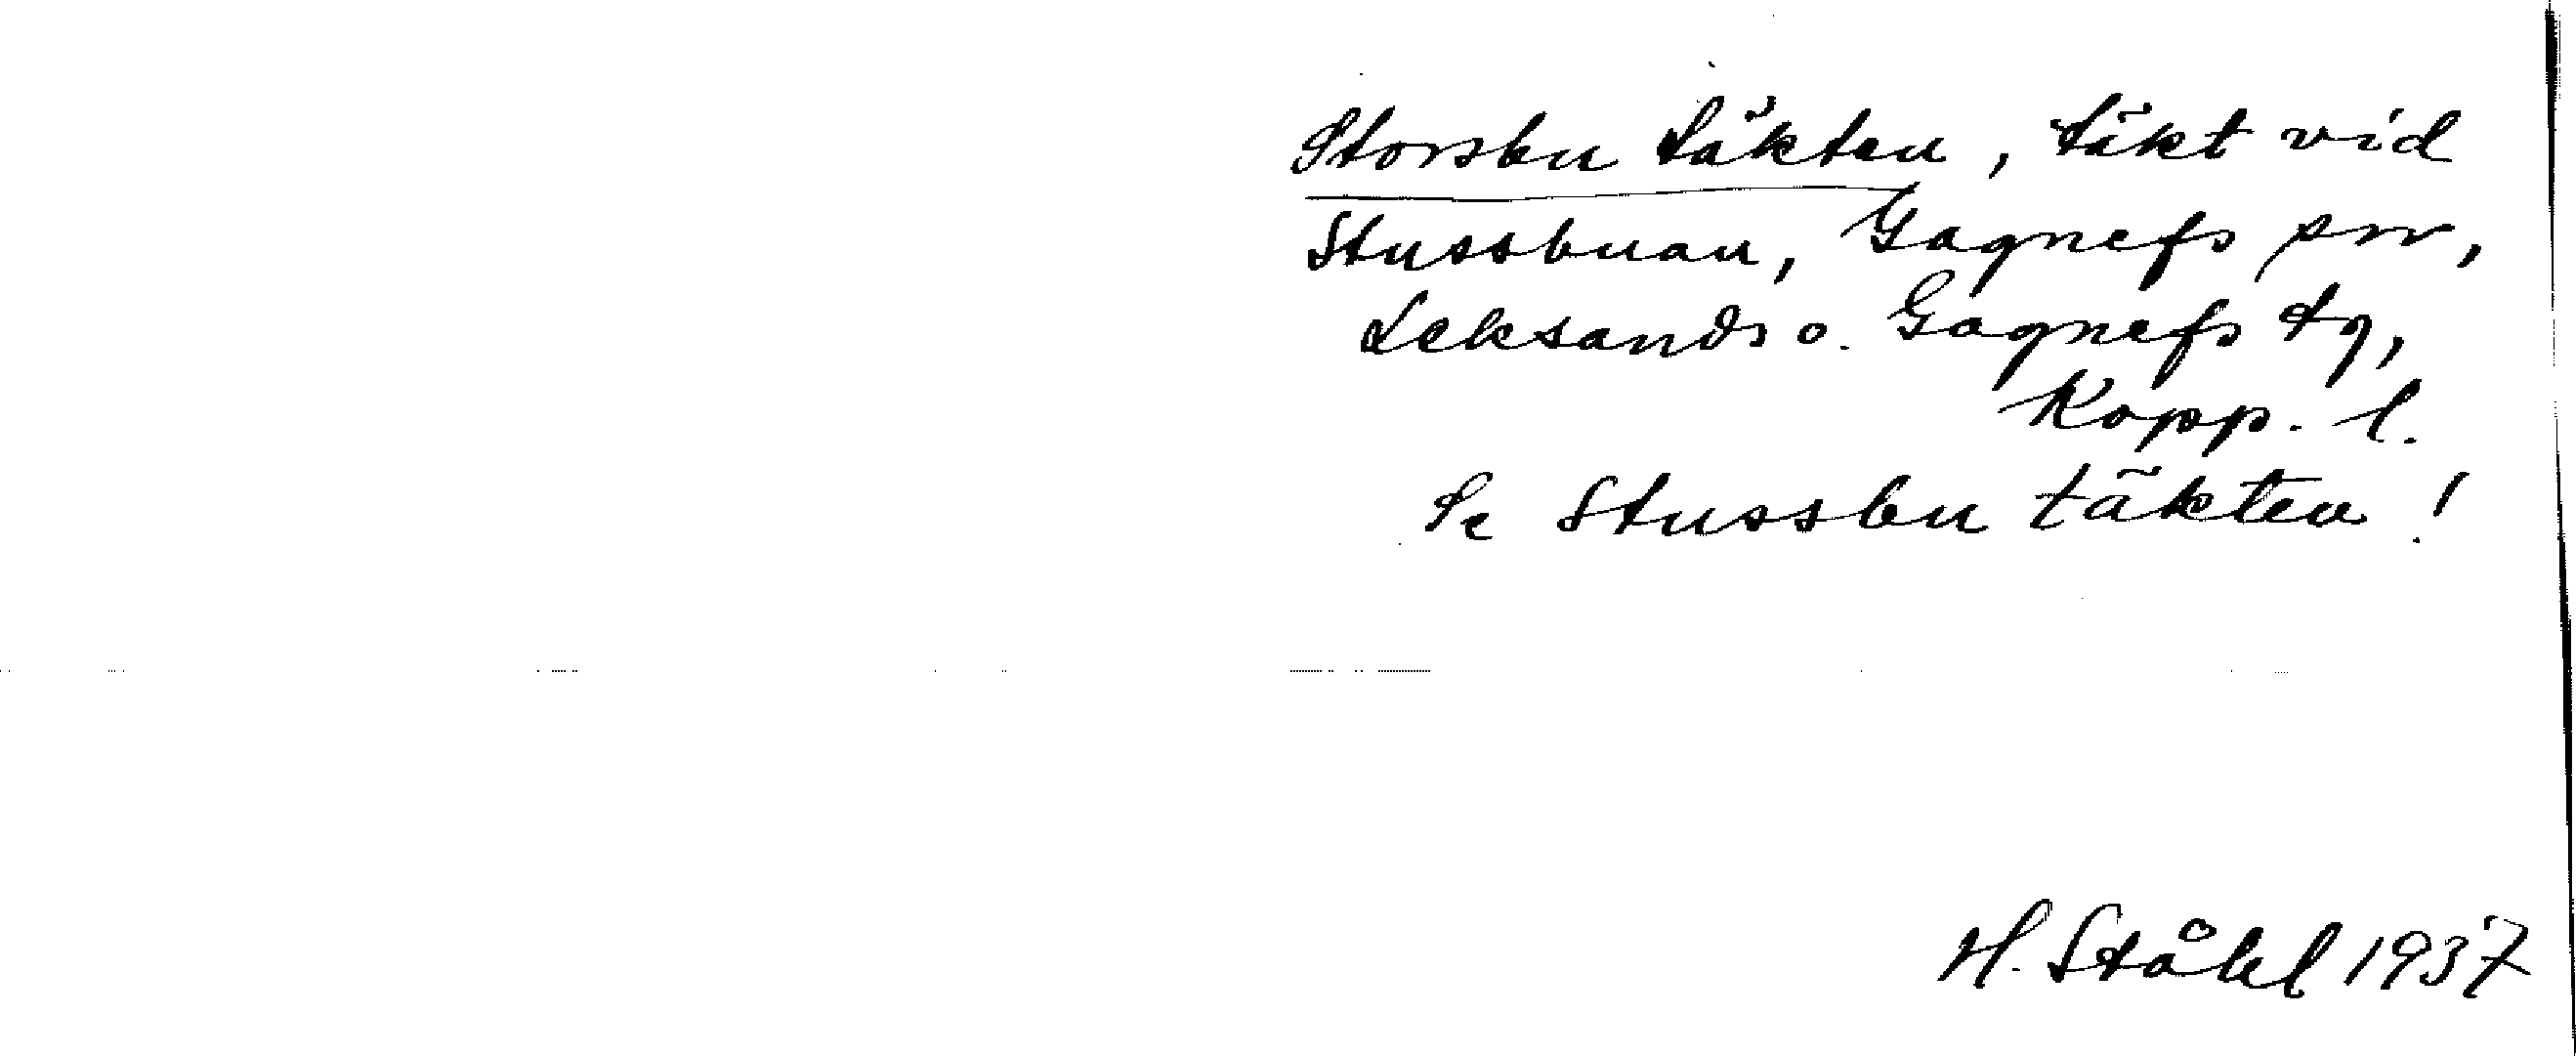 Storsbu täkten, täkt vid
Stussbuan, Gagnefs sn,
Leksands o. Gagnefs tg,
Kopp. l.
Se Stussbu täkten!
H. Ståhl 1937